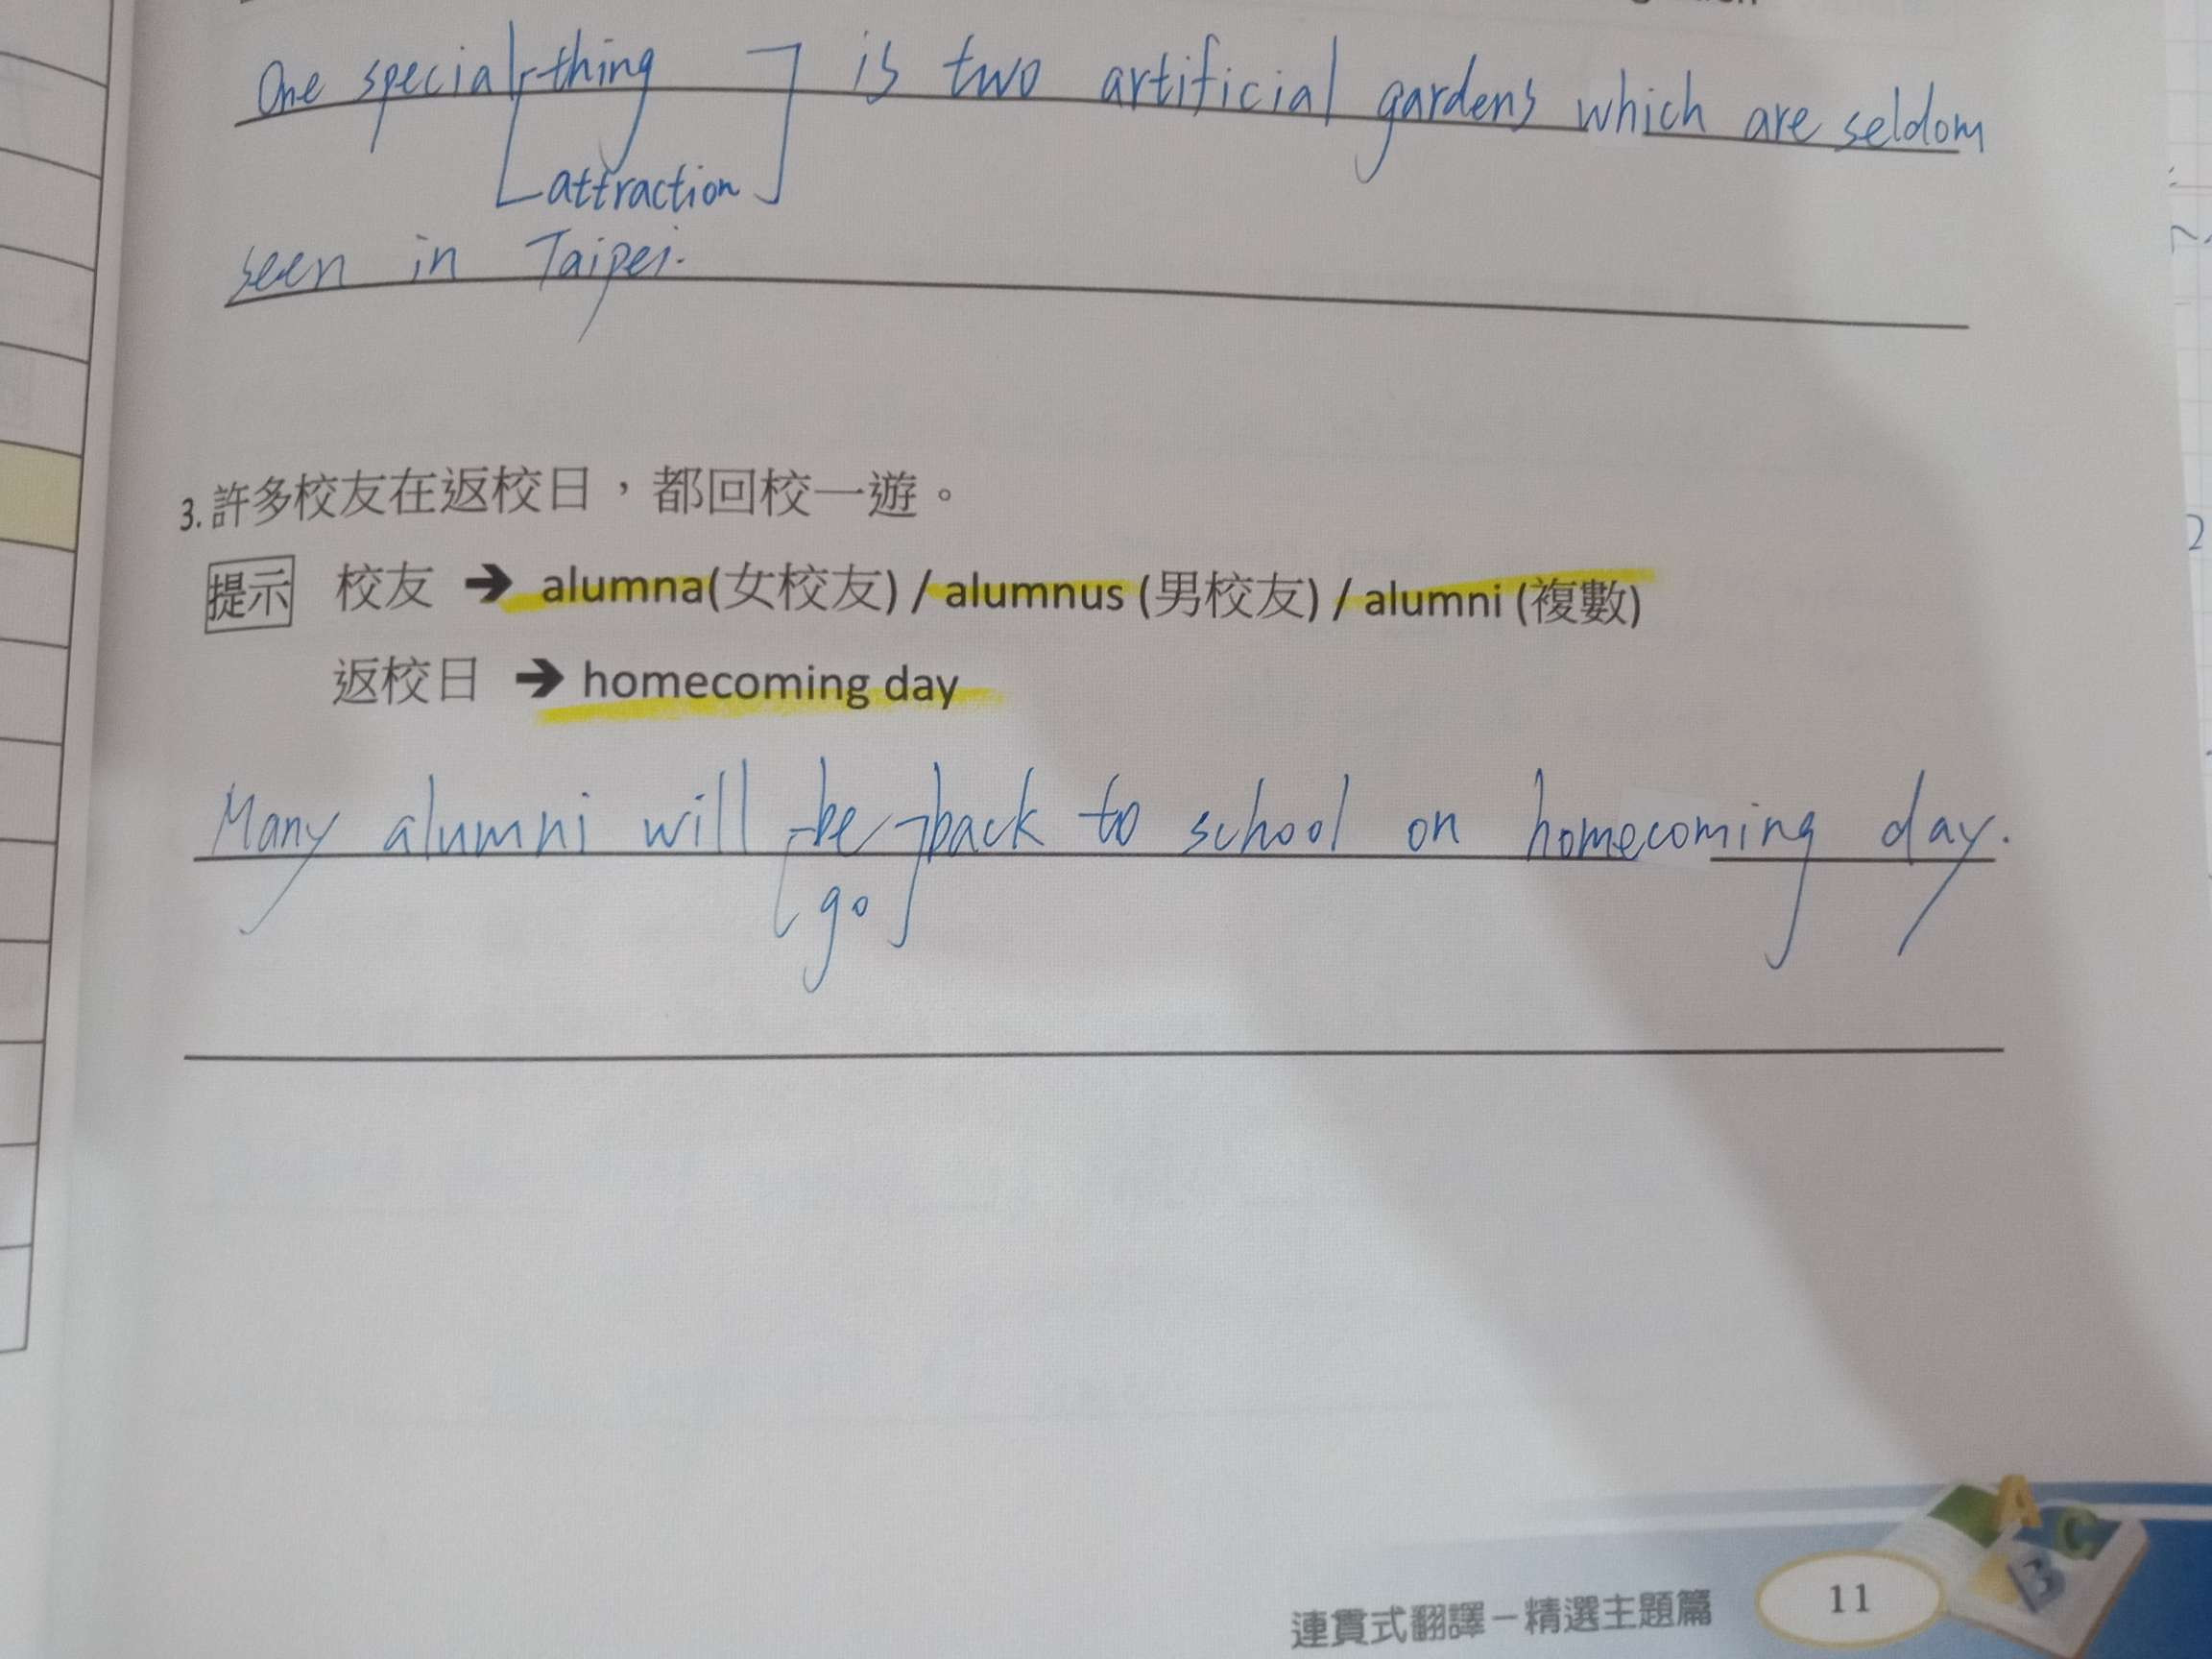 One special thing is two artificial gardens which are seldom
attraction
seen in Taipei.
3. 許多校友在返校日，都回校一遊。
提示 校友 ➔ alumna(女校友) / alumnus (男校友) / alumni (複數)
返校日 ➔ homecoming day
Many alumni will be back to school on homecoming day.
go
連貫式翻譯－精選主題篇 11
A C B